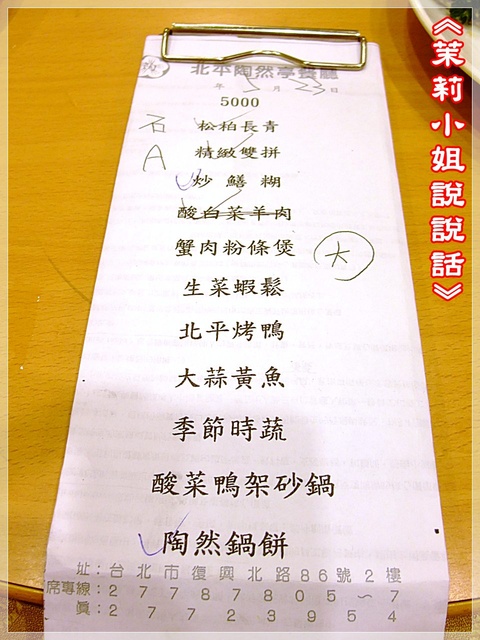 北平陶然亭餐廳
年 5月 23日
5000
石 松柏長青
A 精緻雙拼
炒鱔糊
酸白菜羊肉
蟹肉粉條煲 大
生菜蝦鬆
北平烤鴨
大蒜黃魚
季節時蔬
酸菜鴨架砂鍋
陶然鍋餅
址：台北市復興北路86號2樓
席專線：27787805～7
真：27723954
《茉莉小姐說說話》